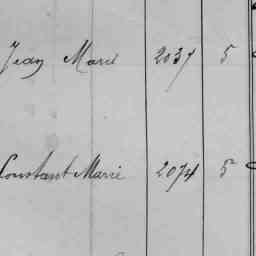 Jean Marie 2037 5
Constant Marie 2074 5